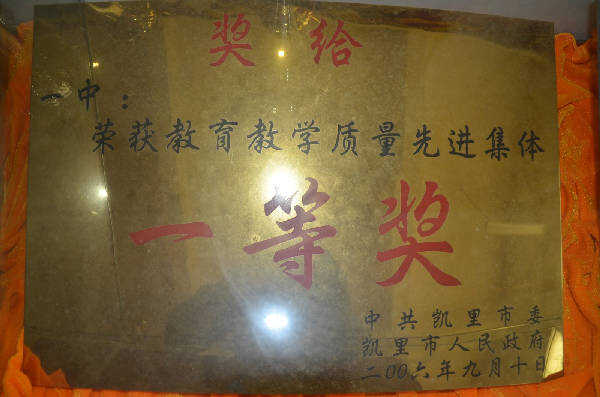 奖给
一中：
荣获教育教学质量先进集体
一等奖
中共凯里市委
凯里市人民政府
二00六年九月十日